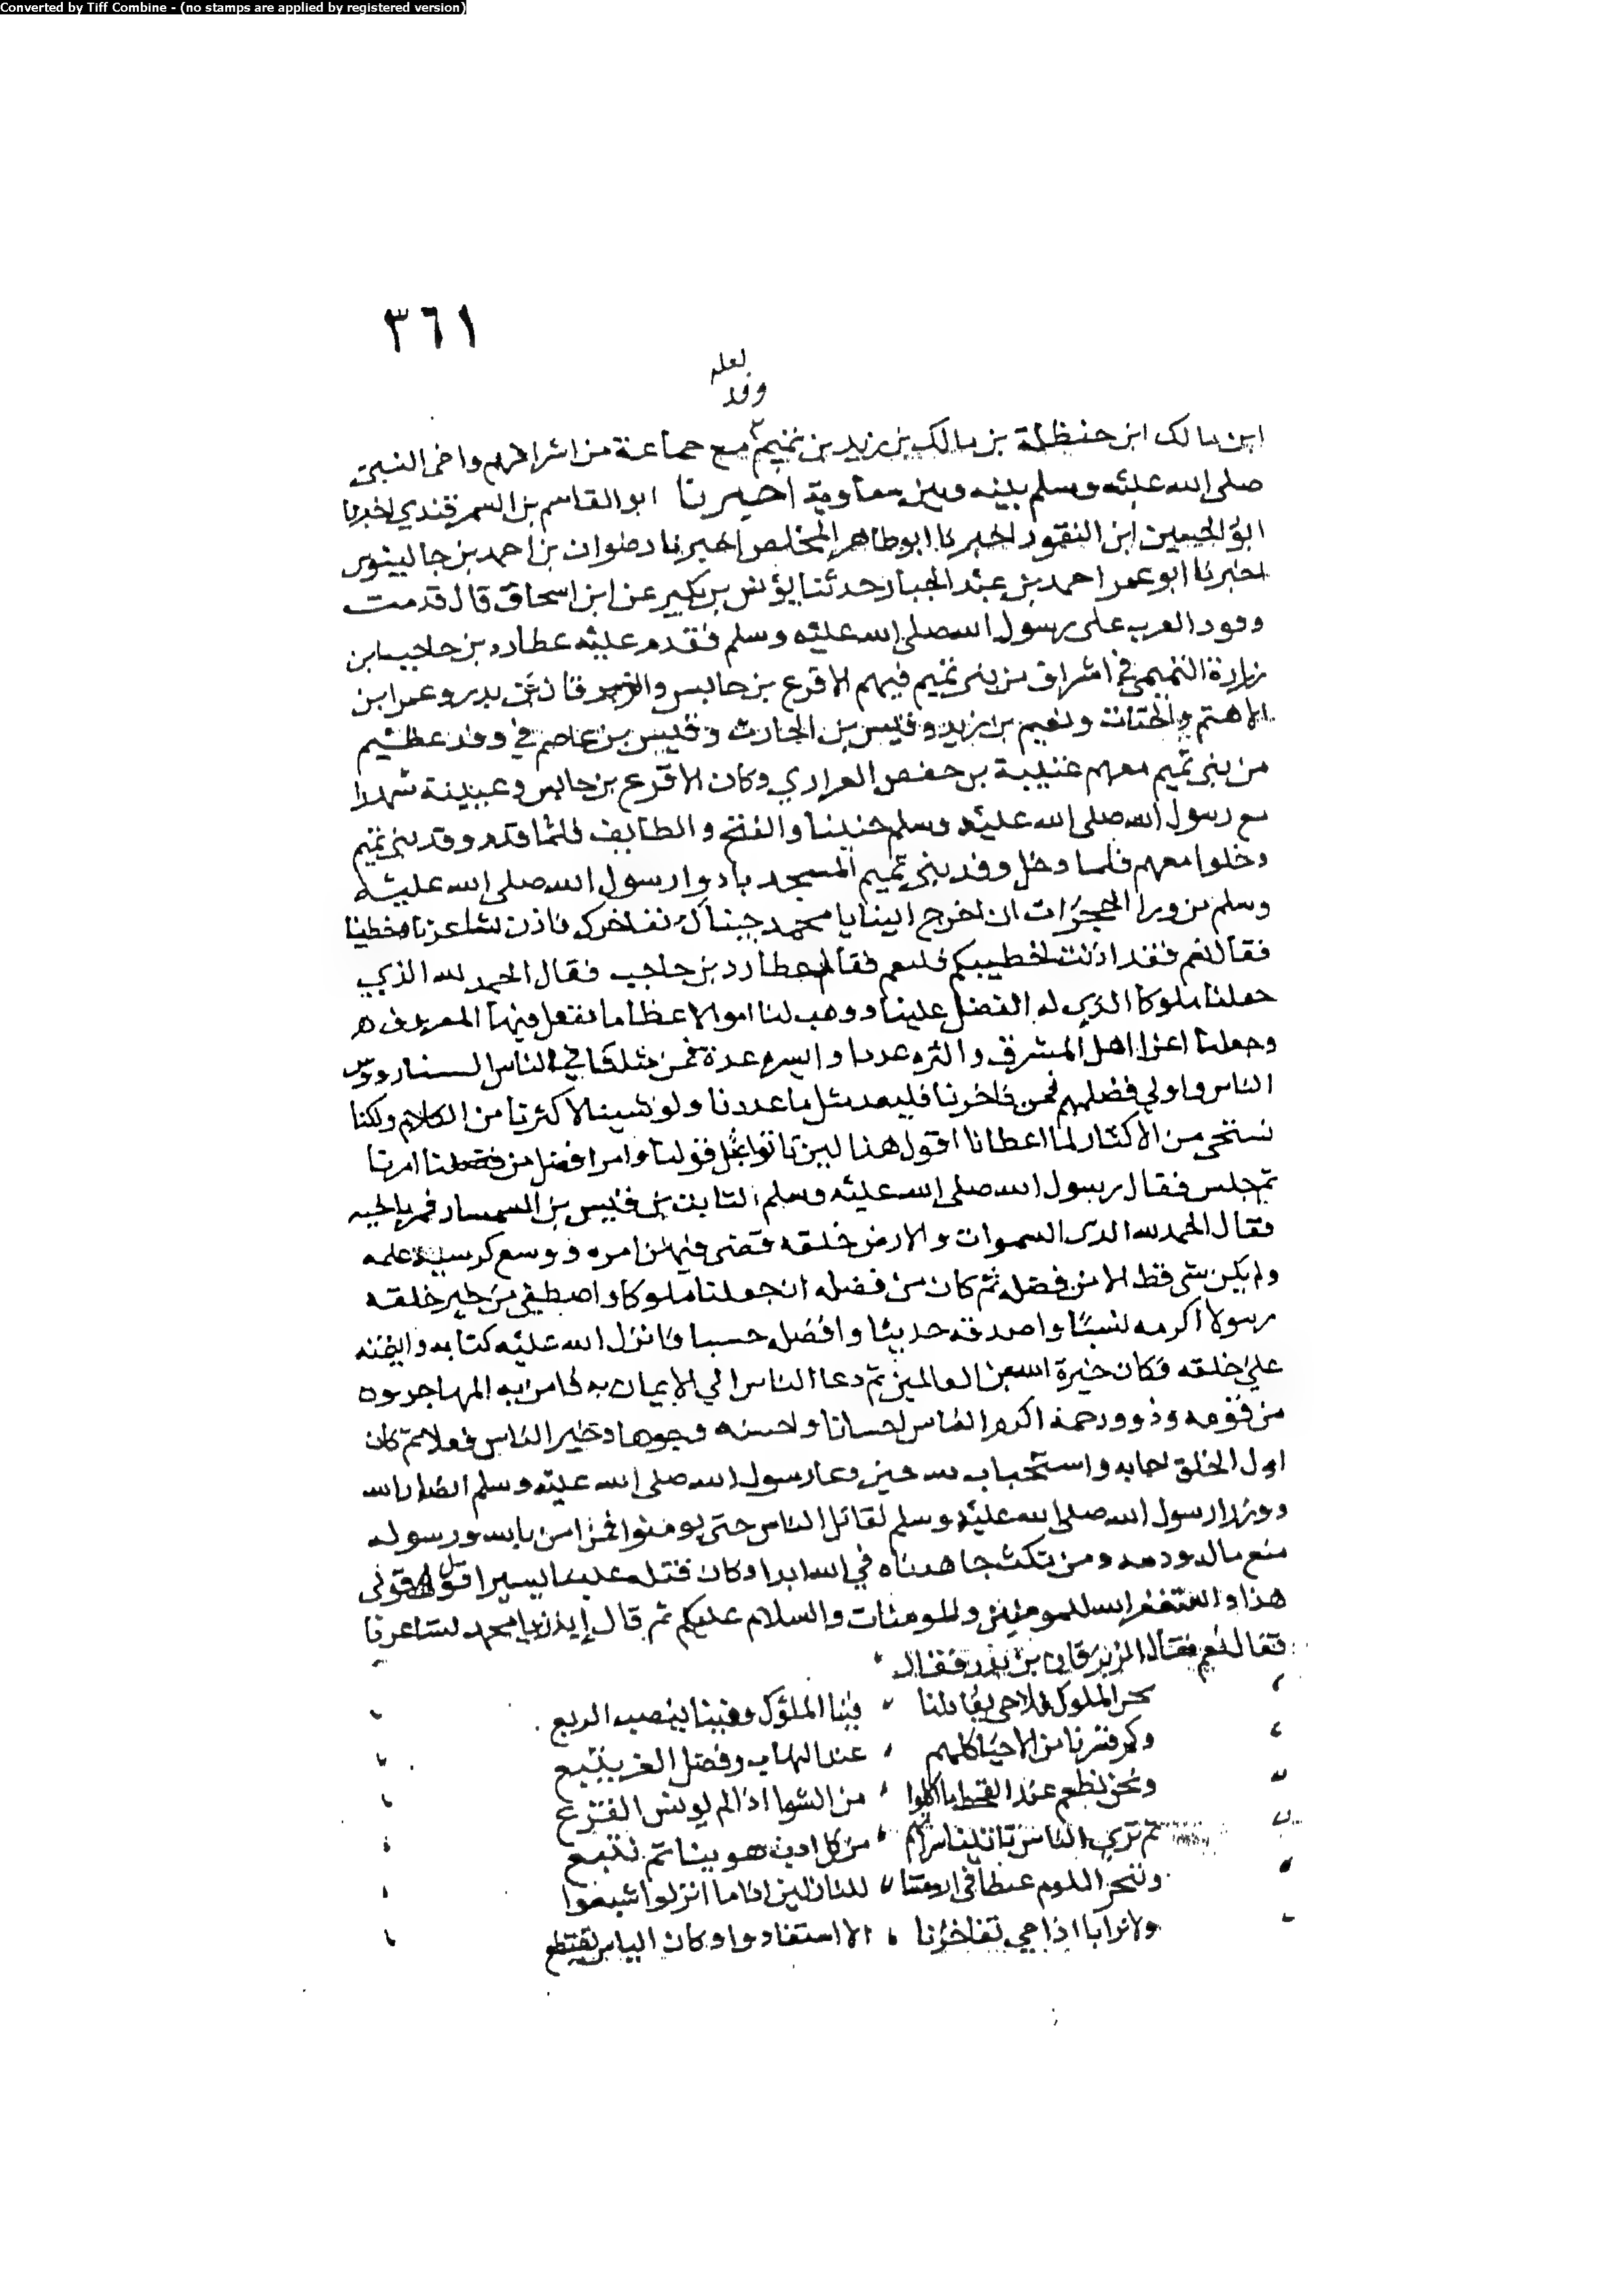 Converted by Tiff Combine - (no stamps are applied by registered version)
٣٦١
لعله
وفد
ابن مالك ابن حنظلة بن مالك بن زيد بن تميم مع جماعة من اشرافهم واخى النبى
صلى الله عليه وسلم بينه وبين معاوية اخبرنا ابو القاسم بن السمرقندي اخبرنا
ابو الحسين ابن النقور اخبرنا ابو طاهر المخلص اخبرنا رضوان بن احمد بن جالينوس
اخبرنا ابو عمر احمد بن عبد الجبار حدثنا يونس بن بكير عن ابن اسحاق قال قدمت
وفود العرب على رسول الله صلى الله عليه وسلم فقدم عليه عطارد بن حاجب ابن
زرارة التميمي في اشراف من بنى تميم فيهم الاقرع بن حابس بدر وعمر ابن
الاهتم والحتات ونعيم بن زيد وقيس بن الحارث وقيس بن عاصم في وفد عظيم
من بنى تميم معهم بن حفص وكان الاقرع بن حابس وعيينة شهدا
مع رسول الله صلى الله عليه وسلم حنينا والفتح والطايف فلما قدم وفد بنى تميم
دخلوا معهم فلما دخل وفد بنى تميم المسجد نادوا رسول الله صلى الله عليه
وسلم من ورا الحجرات ان اخرج الينا يا محمد جيناك نفاخرك فاذن لشاعرنا وخطيبنا
فقال نعم فقد اذنت لخطيبكم فليقم فقام عطارد بن حاجب فقال الحمد لله الذي
جعلنا ملوكا الذي له الفضل علينا ووهب لنا اموالا عظاما نفعل فيها المعروف
وجعلنا اعز اهل المشرق عددا عدة فمن مثلنا في الناس السنا روس
الناس واولي فضلهم فمن فاخرنا فليعد مثل ما عددنا ولو شينا لاكثرنا من الكلام ولكنا
نستحى من الاكثار لما اعطانا اقول هذا قولنا وامر افضل من امرنا
ثم جلس فقال رسول الله صلى الله عليه وسلم لثابت بن قيس بن
فقال الحمد لله الذى السموات والارض خلقه قضى فيهن امره ووسع كرسيه علمه
ولم يكن شى قط الا من فضله ثم كان من فضله ان جعلنا ملوكا واصطفى من خير خلقه
رسولا اكرمه نسبا واصدقه حديثا وافضل حسبا فانزل الله عليه كتابه
على خلقه فكان خيرة الله من العالمين ثم دعا الناس الي الايمان به فامن به المهاجرون
من قومه وذوو رحمه اكرم الناس احسانا واحسنه وجوها وخير الناس فعلا ثم كان
اول الخلق اجابه لله حين دعا رسول الله صلى الله عليه وسلم انصار الله
ووزرا رسول الله صلى الله عليه وسلم نقاتل الناس حتى يومنوا فمن امن بالله ورسوله
منع ماله ودمه ومن نكث جاهدناه في الله ابدا وكان قتله علينا يسيرا قولى
هذا واستغفر الله للمومنين وللمومنات والسلام عليكم ثم قال إيذن يا محمد لشاعرنا
فقال نعم فقال الزبرقان بن بدر فقال
نحن الملوك فلا حى يقابلنا فينا الملوك وفينا ينصب الربع
وكم قسرنا من الاحيا كلهم عند النهاب وفضل العز يتبع
ونحن نطعم عند القحط ما اكلوا من الشوا اذا لم يونس القزع
ثم تري الناس تاتينا من كل ارض هوينا ثم نتبع
وننحر الكوم عبطا فى ارومتنا للنازلين اذا ما انزلوا شبعوا
ولا ترانا اذا حي تفاخرنا الا استفادوا وكان الياس يقتطع